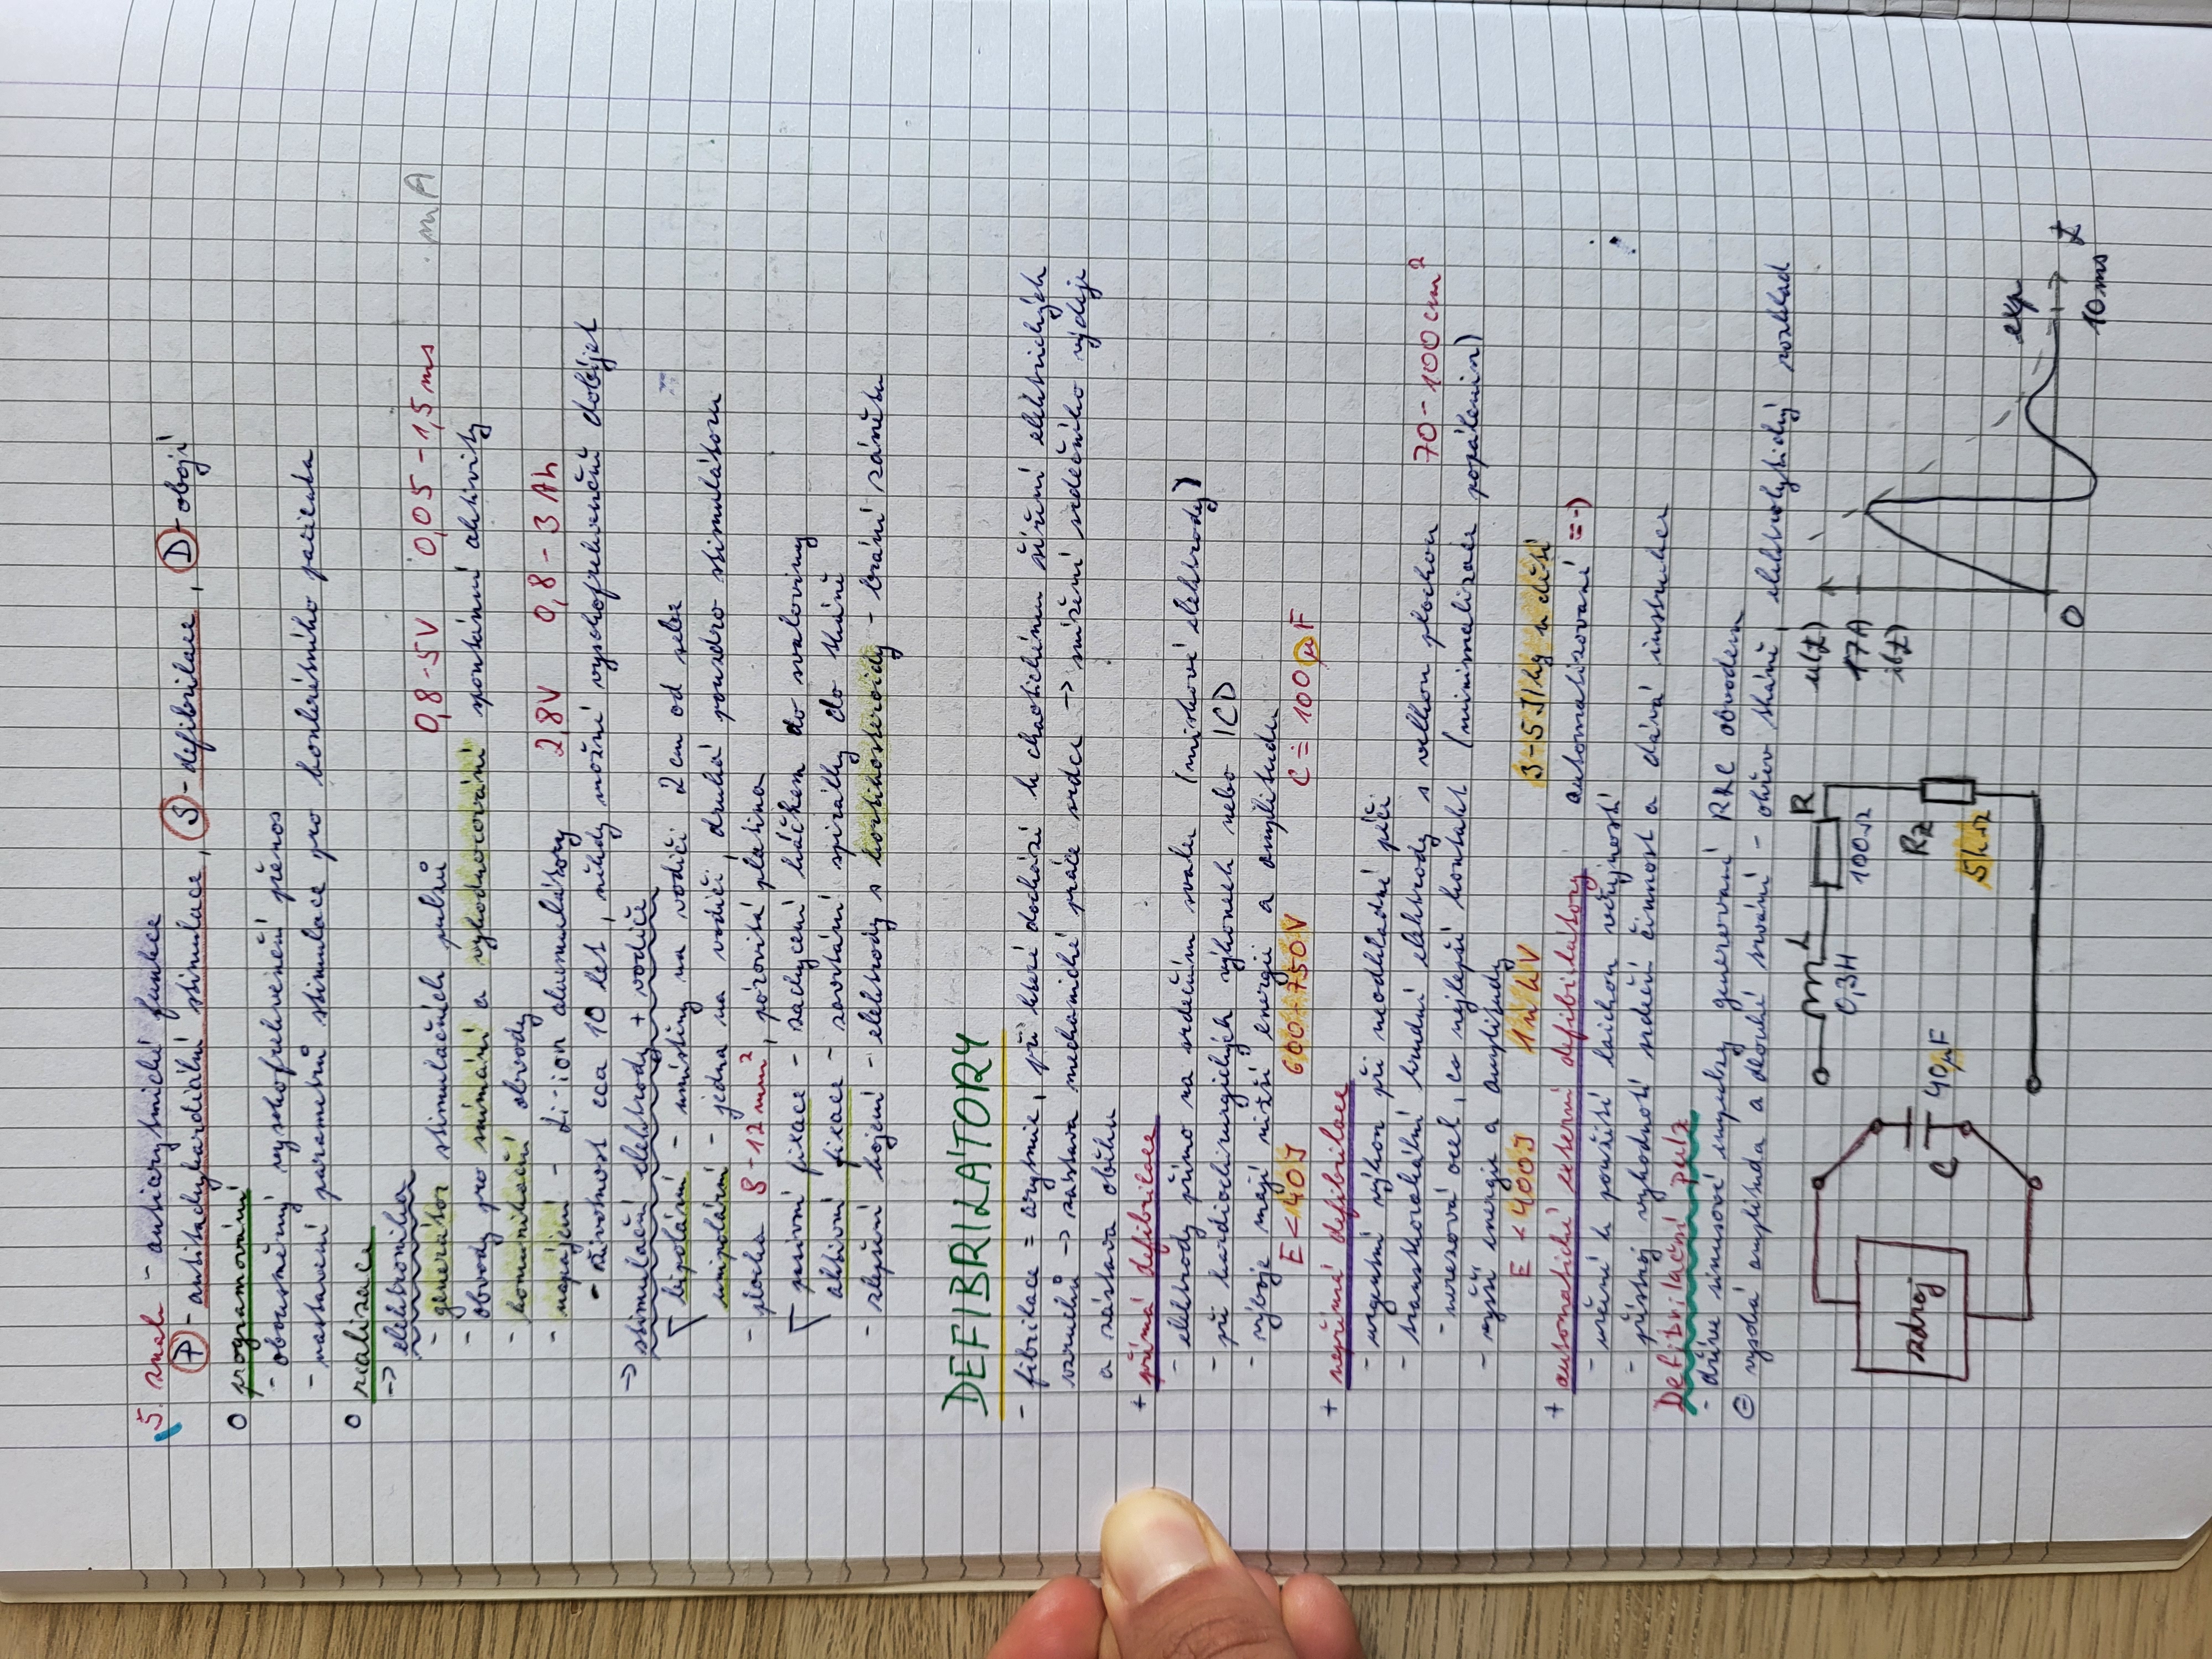 5. znak - antiarytmické funkce
P - antitachykardiální stimulace, S - defibrilace, D - obojí
o programování
- obousměrný vysokofrekvenční přenos
- nastavení parametrů stimulace pro konkrétního pacienta
o realizace
-> elektronika
- generátor stimulačních pulzů 0,8-5V 0,05-1,5ms mA
- obvody pro snímání a vyhodnocování spontánní aktivity
- komunikační obvody
- napájení - Li-ion akumulátory 2,8V 0,8-3 Ah
- životnost cca 10 let, někdy možné vysokofrekvenčně dobíjet
-> stimulační elektrody + vodiče
bipolární - umístěny na vodiči 2cm od sebe
unipolární - jedna na vodiči, druhá pouzdro stimulátoru
- plocha 8-12mm², pórovitá platina
pasivní fixace - zachycení háčkem do svaloviny
aktivní fixace - zavrtání spirálky do tkáně
- zlepšení hojení - elektrody s kortikosteroidy - brání zánětu
DEFIBRILÁTORY
- fibrilace = arytmie, při které dochází k chaotickému šíření elektrických
vzruchů -> zástava mechanické práce srdce -> snížení srdečního výdeje
a zástava oběhu
+ přímá defibrilace
- elektrody přímo na srdečním svalu (miskové elektrody)
- při kardiochirurgických výkonech nebo ICD
- výboje mají nižší energii a amplitudu
E < 40J 600-750V C ≐ 100 μF
+ nepřímá defibrilace
- urgentní výkon při neodkladné péči
- transthorakální hrudní elektrody s velkou plochou 70-100cm²
- nerezová ocel, co nejlepší kontakt (minimalizace popálenin)
- vyšší energie a amplitudy
E < 400J 1n kV 3-5J/kg u dětí
+ automatické externí defibrilátory automatizované =-)
- určené k použití laickou veřejností
- přístroj vyhodnotí srdeční činnost a dává instrukce
Defibrilační pulz
- dříve sinusové impulzy generované RLC obvodem
⊖ vysoká amplituda a dlouhé trvání - ohřev tkáně, elektrolytický rozklad
zdroj
C 40μF
L
0,3H
R
100Ω
Rz
5kΩ
u(t)
17A
i(t)
0
exp
t
10ms